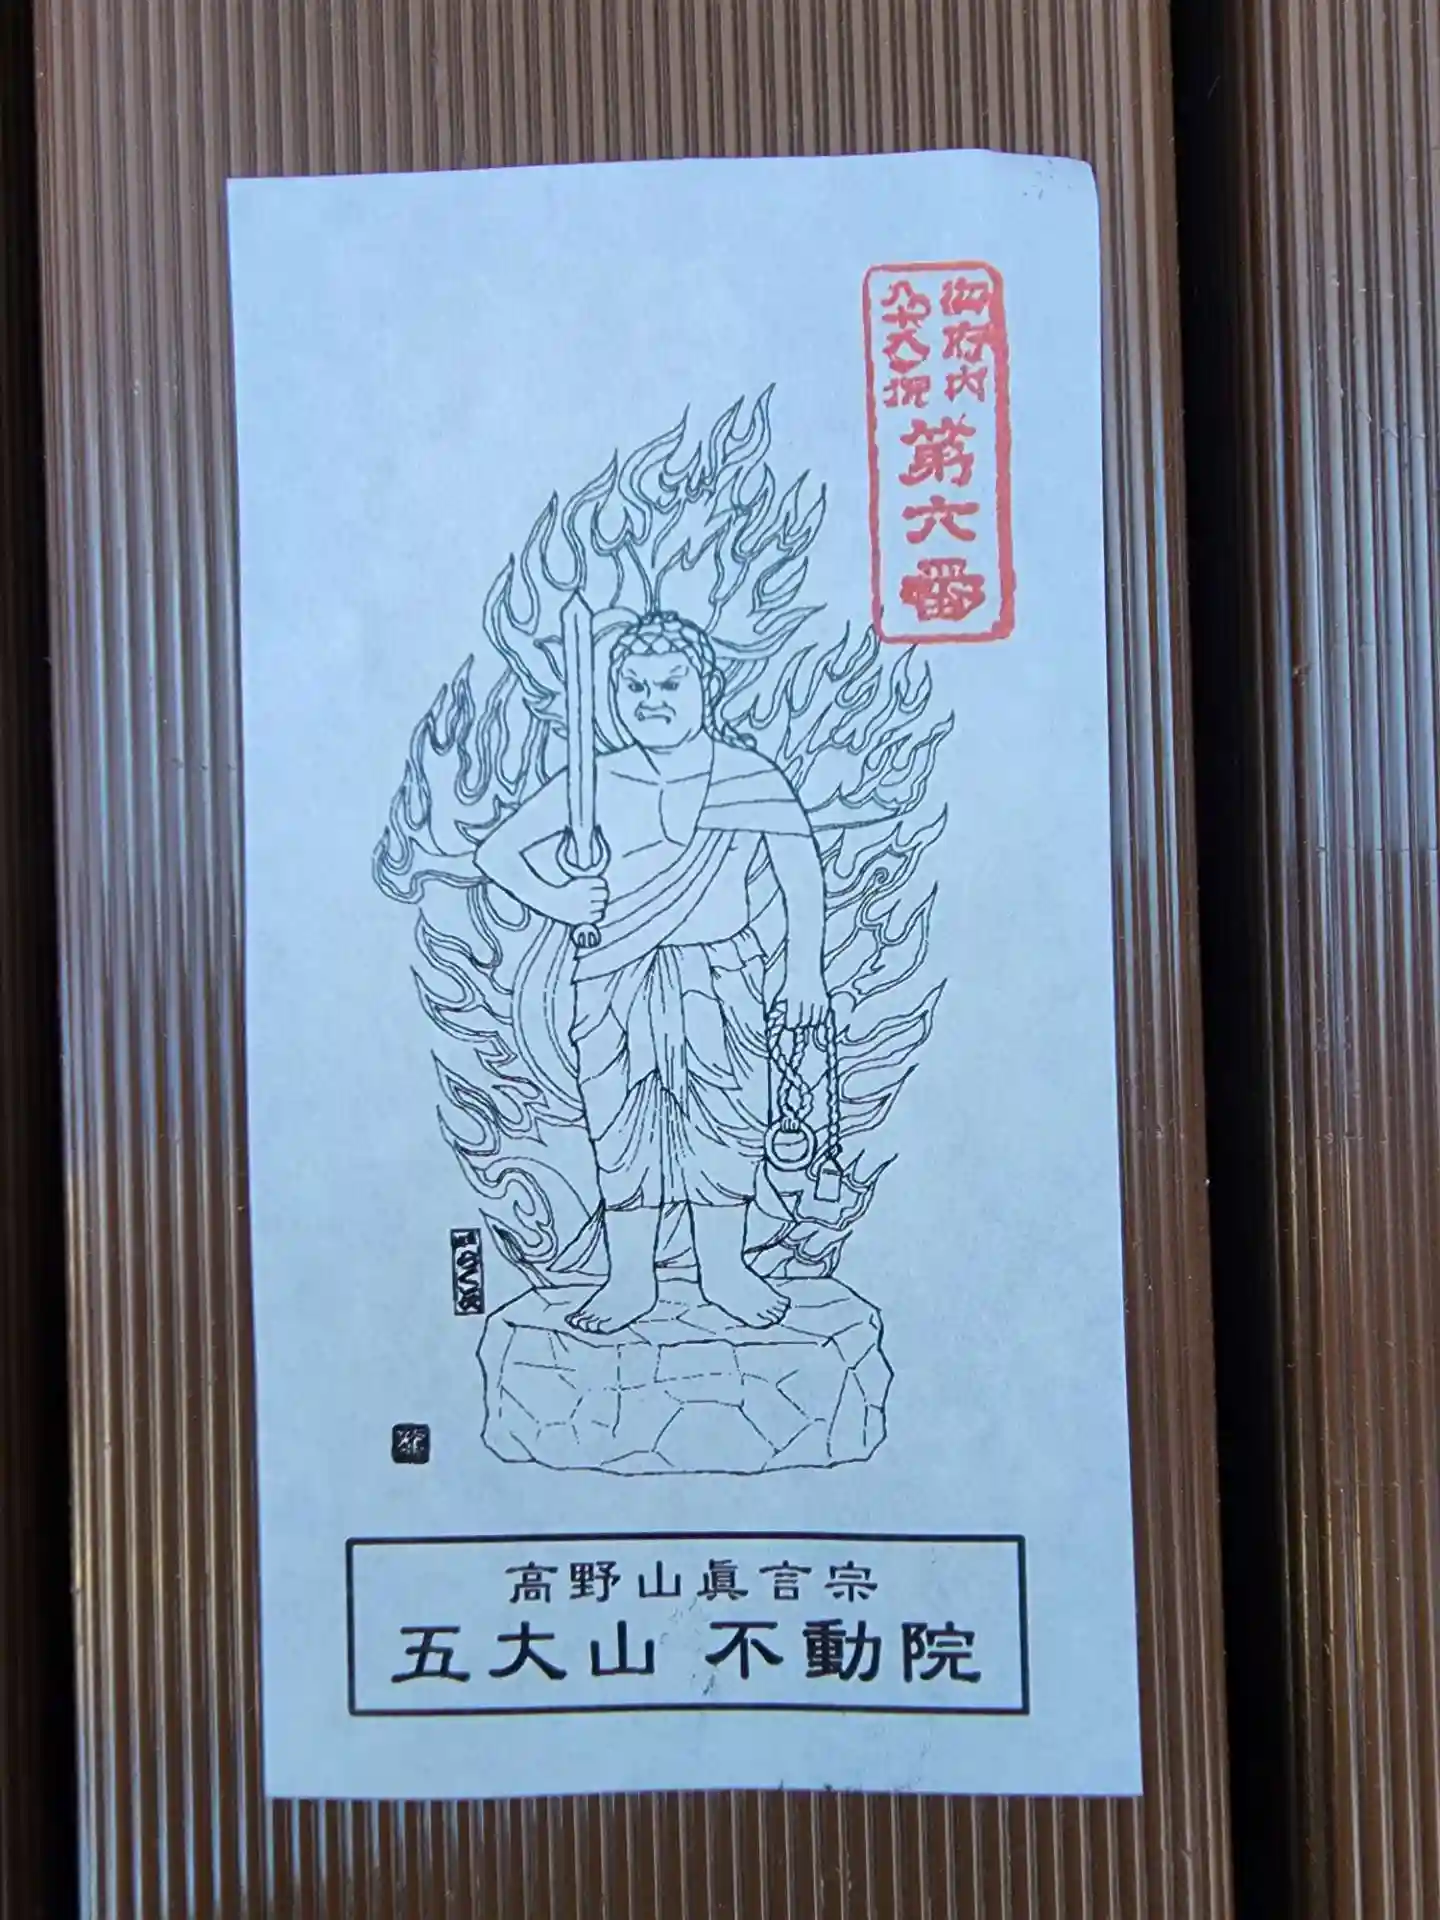 御府内
八十八ヶ所
第六番
高野山眞言宗
五大山 不動院